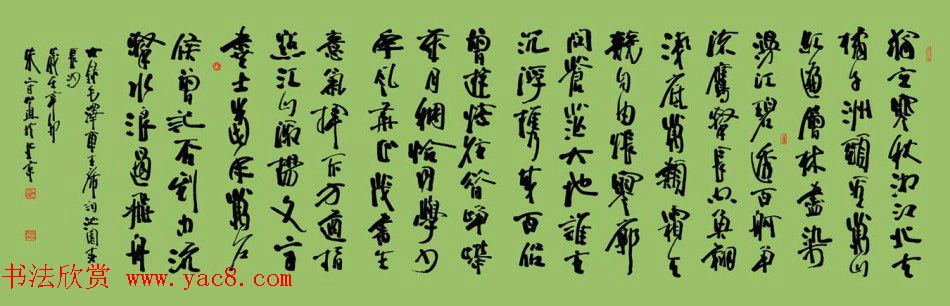 独立寒秋湘江北去
橘子洲头看万山
红遍层林尽染
漫江碧透百舸争
流鹰击长空鱼翔
浅底万类霜天
竞自由怅寥廓
问苍茫大地谁主
沉浮携来百侣
曾游忆往昔峥嵘
岁月稠恰同学少
年风华正茂书生
意气挥斥方遒指
点江山激扬文字
粪土当年万户
侯曾记否到中流
击水浪遏飞舟
毛泽东主席词沁园春
长沙
书法欣赏 www.yac8.com